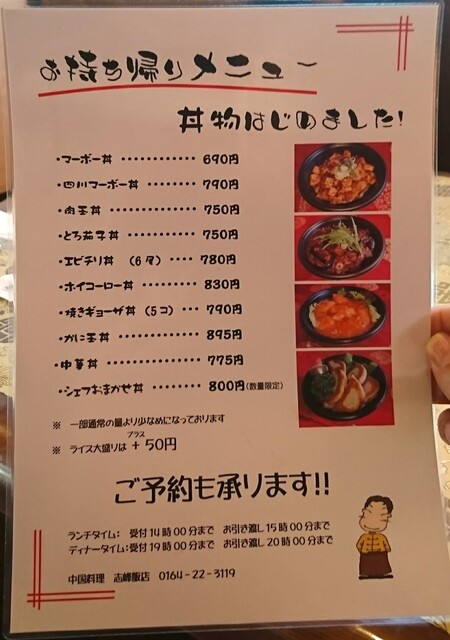 お持ち帰りメニュー
丼物はじめました!
・マーボー丼 ・・・・・・・・・・・・ 690円
・四川マーボー丼 ・・・・・・・・ 790円
・肉玉丼 ・・・・・・・・・・・・・・ 750円
・とろ茄子丼 ・・・・・・・・・・・・ 750円
・エビチリ丼 (6尾) ・・・・ 780円
・ホイコーロー丼 ・・・・・・・・・ 830円
・焼きギョーザ丼 (5コ) ・・・ 790円
・かに玉丼 ・・・・・・・・・・・・・ 895円
・中華丼 ・・・・・・・・・・・・・・ 775円
・シェフおまかせ丼 ・・・・・・・・ 800円(数量限定)
※ 一部通常の量より少なめになっております
プラス
※ ライス大盛りは + 50円
ご予約も承ります!!
ランチタイム: 受付14時00分まで お引き渡し15時00分まで
ディナータイム:受付19時00分まで お引き渡し20時00分まで
中国料理 志峰飯店 0164-22-3119